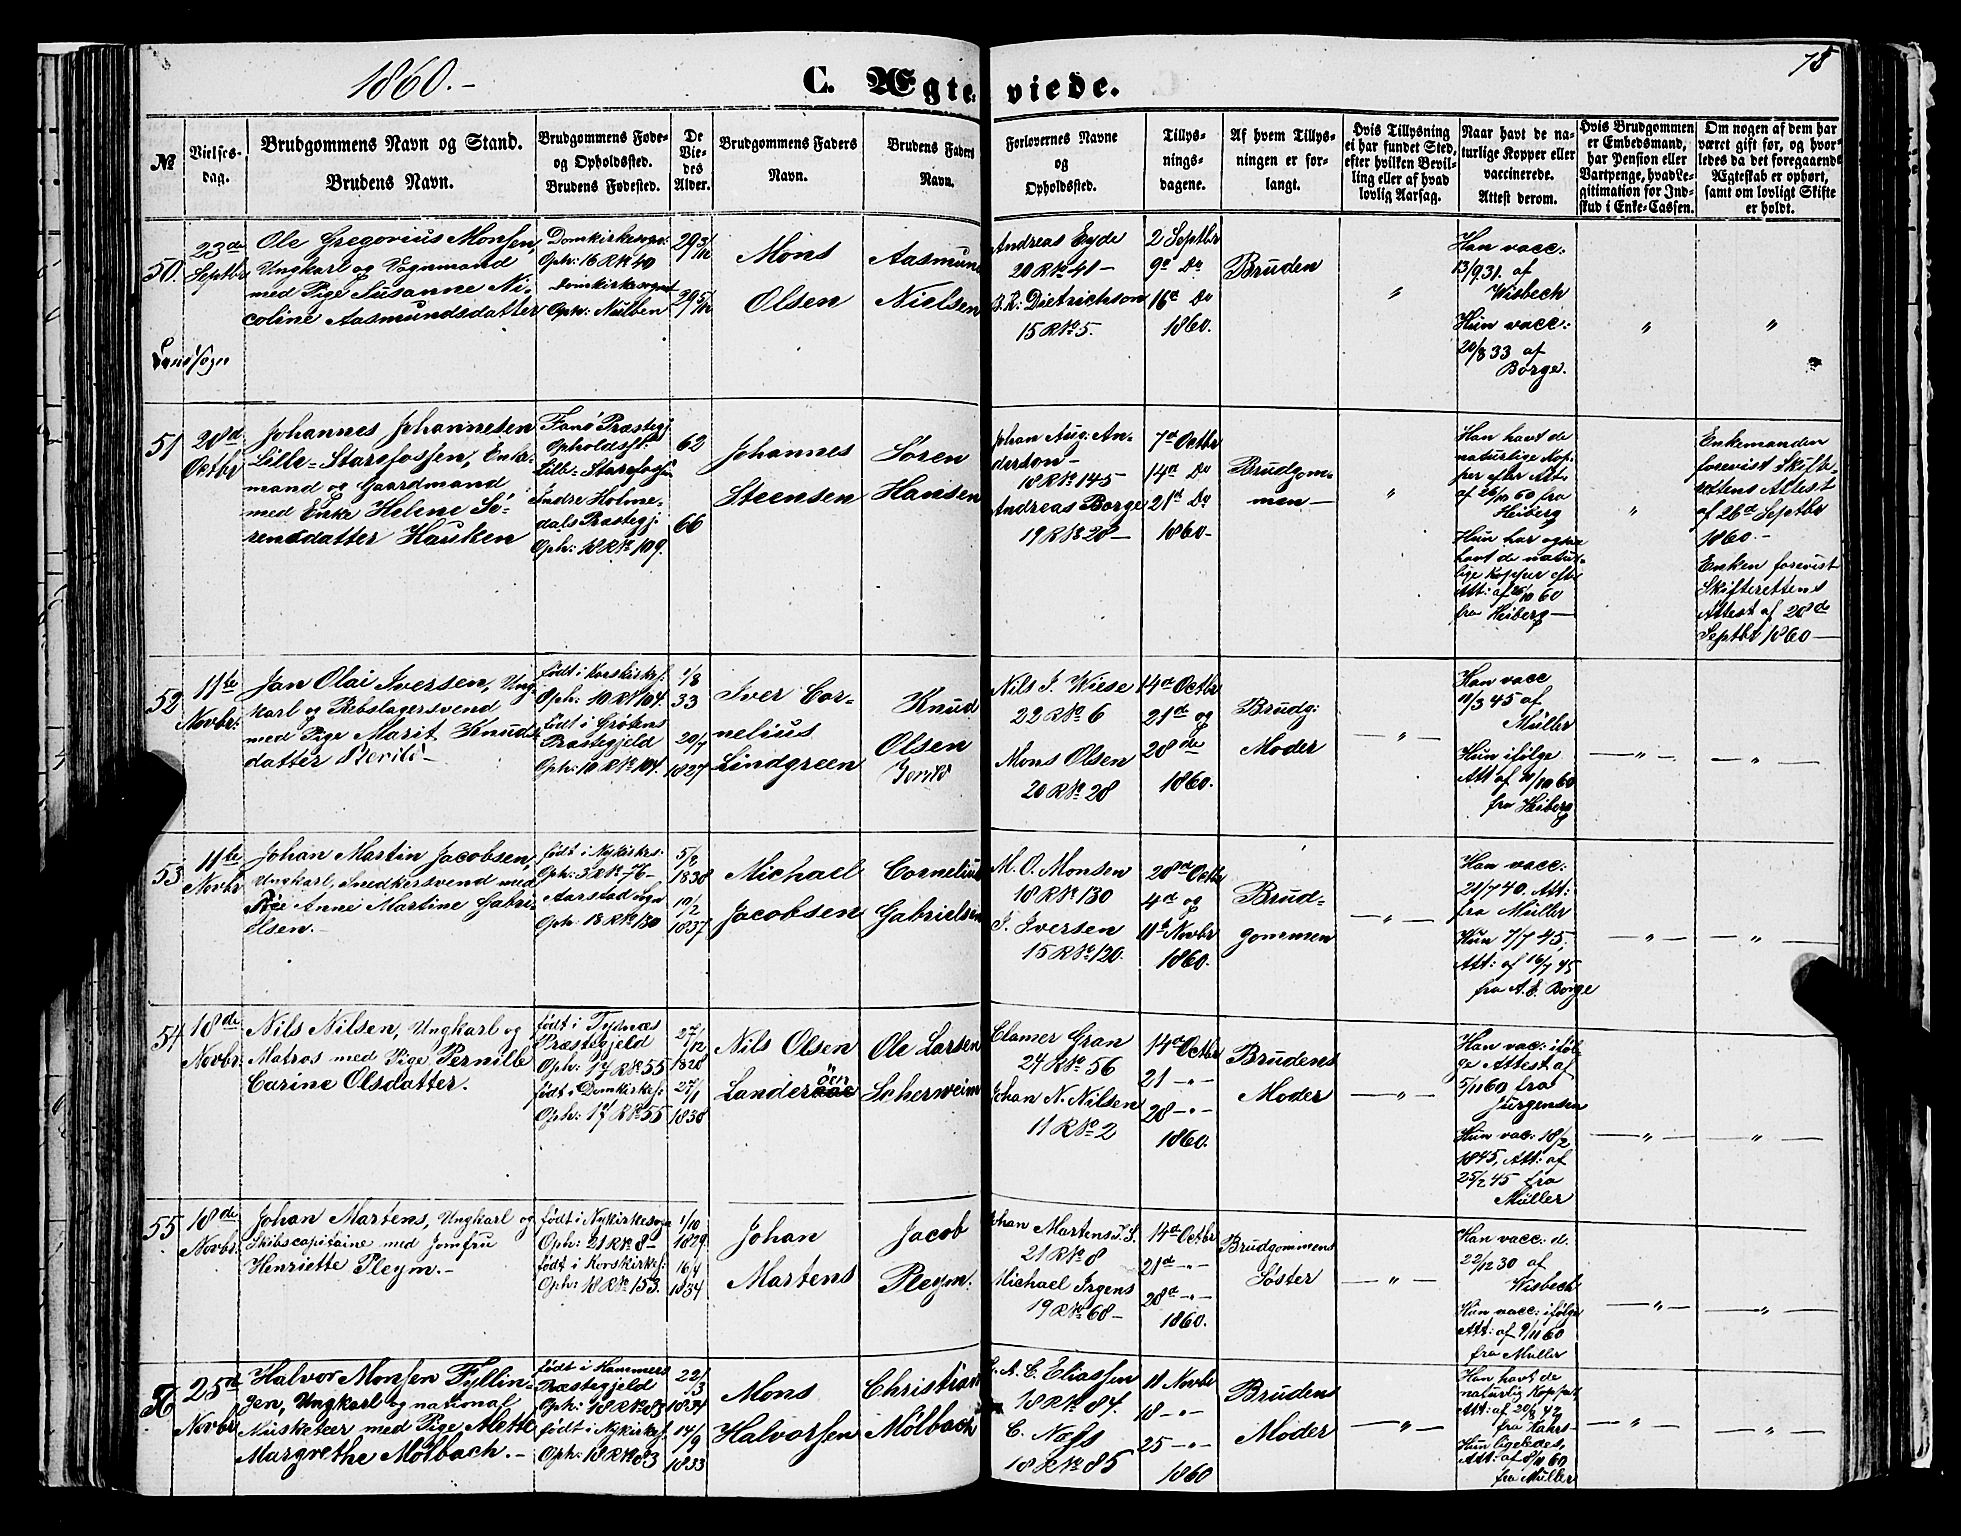 1860.-
C. Ægteviede.
75
№
Vielses-
dag.
Brudgommens Navn og Stand.
Brudens Navn.
Brudgommens Føde-
og Opholdssted.
Brudens Fødested.
De
Vie-
des
Alder.
Brudgommens Faders
Navn.
Brudens Faders
Navn.
Forlovernes Navne
og
Opholdssted.
Tillys-
nings-
dagene.
Af hvem Tillys-
ningen er for-
langt.
Hvis Tillysning
ei har fundet Sted,
efter hvilken Bevil-
ling eller af hvad
lovlig Aarsag.
Naar havt de na-
turlige Kopper eller
vaccinerede.
Attest derom.
Hvis Brudgommen
er Embedsmand,
har Pension eller
Vartpenge, hvad Le-
gitimation for Ind-
skud i Enke-Cassen.
Om nogen af dem har
været gift før, og hvor-
ledes da det foregaaende
Ægteskab er ophørt,
samt om lovligt Skifte
er holdt.
50.
23de
Septbr
Landsogn
Ole Gregorius Monsen,
Ungkarl og Vognmand
med Pige Susanne Ni-
coline Aasmundsdatter
Domkirkesogn:
Oph: 16 R № 40
Domkirkesognet
Oph:
29 3/12
29 5/12
Mons
Olsen
Aasmund
Nielsen
Andreas Eyde
20 R № 41 -
Dietrichson
15 R № 5.
2 Septbr
9de Do
16de Do
1860.
Bruden
"
Han vacc:
13/9 31. af
Wisbech
Hun vacc:
20/8 33 af
Borge.
"
"
51
28de
Octbr
Johannes Johannesen
Lille-Starefossen, Enke-
mand og Gaardmand
med Enke Helene Sö-
rensdatter Hauken
Fanø Præstegj.
Opholdsst:
Lille-Starefossen
Indre Holme-
dals Præstegj:
Oph: 18 R № 109.
62
66
Johannes
Steensen
Sören
Hansen
Johan Aug: An-
derson -
18 R № 145 -
Andreas Borge
19 R № 28 -
7de Octbr
14de Do
21de Do
1860 -
Brudgom-
men -
"
Han havt de
naturlige Kop-
per efter Att:
af 26/10 60 fra
Heiberg
Hun har ogsaa
havt de natur-
lige Kopper efter
Att: af 26/10 60
fra Heiberg -
"
Enkemanden
forevist Skifte-
rettens Attest
af 26de Septbr
1860. -
Enken forevist
Skifterettens
Attest af 28de
Septbr 1860 -
52
11te
Novbr:
Jan Olai Iversen, Ung-
karl og Rebslagersvend
med Pige Marit Knuds-
datter
født i Korskirkes:
Oph: 10 R № 104.
født i
Præstegjeld
Oph: 10 R № 104.
1/8
33
20/7
1827
Iver Cor-
nelius
Lindgreen
Knud
Olsen
Nils J. Wiese
22 R № 6
Mons Olsen
20 R № 28
14de Octbr
21de og
28de
1860.
Brudg:
Moder
- " -
Han vacc
11/3 45 af
Müller
Hun ifølge
Att af 11/10 60
fra Heiberg
- " -
- " -
53
11te
Novbr
Johan Martin Jacobsen,
Ungkarl, Snedkersvend med
Pige Anne Martine Gabri-
elsen. -
født i Nykirkes:
Oph: 3 R № 76 -
Aarstad Sogn
Oph: 18 R № 130
5/2
1838
19/2
1837
Michael
Jacobsen
Cornelius
Gabrielsen
M. O. Monsen
18 R № 130
I. Iversen
15 R № 120.
28de Octbr
4de og
11te Novbr
1860.
Brud-
gommen
- " -
Han vacc:
21/7 40. Att:
fra Müller
Hun 7/7 45.
Att: af 16/7 45
fra A. E. Borge
- " -
- " -
54
18de
Novbr:
Nils Nilsen, Ungkarl og
Matros med Pige Pernille
Carine Olsdatter.
født i Tysnæs
Præstegjeld
Oph: 17 R № 55
født i Domkirkes:
Oph: 17 R № 55
27/12
1828
27/1
1838
Nils Olsen
Landeröen
Ole Larsen
Scherweim
Clamer Gran
24 R № 56
Johan N. Nilsen
11 R № 2
14de Octbr
21 - " -
28 - " -
1860.
Brudens
Moder
- " -
Han vac: iføl-
ge Attest af
5/11 60 fra
Jürgensen
Hun vac: 18/2
1845, Att: af
25/2 45 fra
Müller
- " -
- " -
55
18de
Novbr.
Johan Martens, Ungkarl og
Skibscapitaine med Jomfru
Henriette Pleym. -
født i Nykirkesogn
Oph: 21 R № 8 -
født i Korskirkes:
Oph: 18 R № 153.
1/10
1829
16/4
1834
Johan
Martens
Jacob
Pleym.
Johan Martens J. S.
21 R № 8
Michael Irgens
19 R № 68 -
14de Octbr
21de - " -
28de - " -
1860.
Brudgommens
Søster
- " -
Han vacc: d.
22/12 30 af
Wisbech
Hun vacc: ifølge
Att: af 9/11 60
fra Müller
- " -
- " -
56
25de
Novbr
Halvor Monsen Fyllin-
gen, Ungkarl og national
Musketeer med Pige Alette
Margrethe Mölbach. -
født i Hammers
Præstegjeld
Oph: 18 R № 83
født i Nykirkes:
Oph: 18 R № 83
22/3
1834
14/9
1833
Mons
Halvorsen
Christian
Mölbach
A. C. Eliassen
18 R № 84.
C.
18 R № 85
11 Novbr
18 - " -
25 - " -
1860
Brudens
Moder
- " -
Han havt de
naturlig Kopper,
Att: af 20/8 42
fra Kahrs -
Hun ligeledes,
Att: af 8/11 60
fra Müller
- " -
- " -